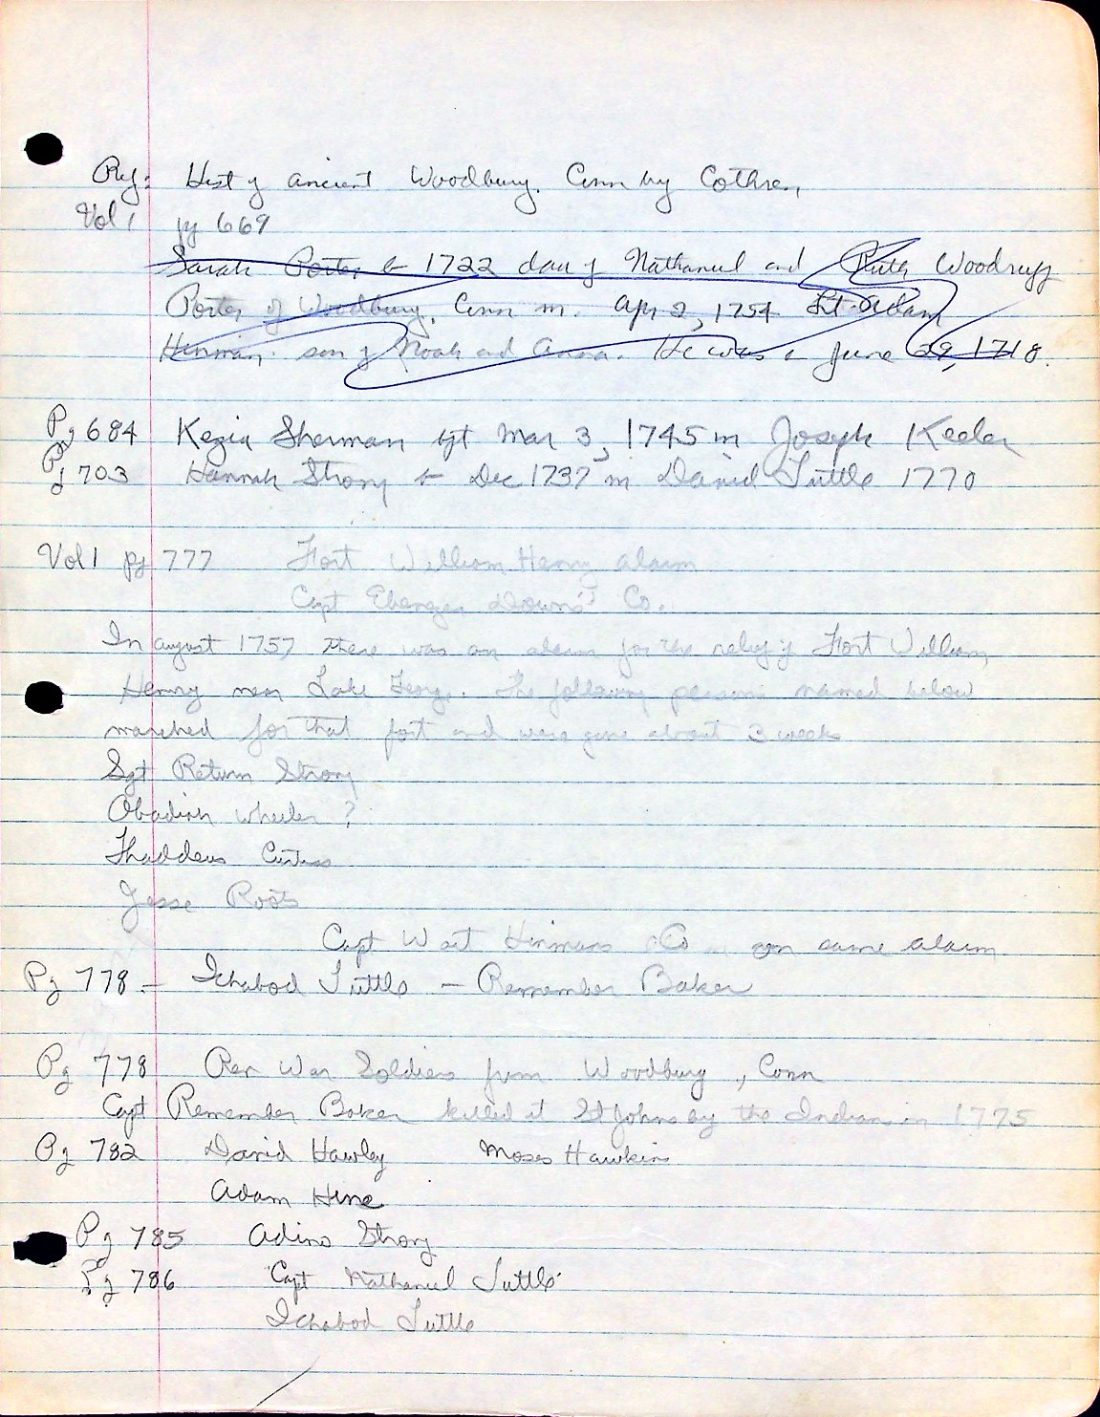 Ref: Hist of ancient Woodbury, Conn by Cothren,
Vol 1 pg 669
Sarah Porter b 1722 dau of Nathaniel and Ruth Woodruff
Porter of Woodbury, Conn m. Apr 2, 1754 Lt. Adam
Hinman son of Noah and Anna. He was b June 29, 1718.
Pg 684 Kezia Sherman bpt Mar 3, 1745 m Joseph Keeler
Pg 703 Hannah Strong b Dec 1737 m Daniel Tuttle 1770
Vol 1 pg 777 Fort William Henry alarm
Capt Ebenezer Downs' Co.
In august 1757 there was an alarm for the relief of Fort William
Henry near Lake George. The following persons named below
marched for that fort and were gone about 3 weeks
Sgt Return Strong
Obadiah Wheeler ?
Thaddeus Curtiss
Jesse Roots
Capt Wait Hinmans Co on same alarm
Pg 778 - Ichabod Tuttle - Remember Baker
Pg 778 Rev War Soldiers from Woodbury, Conn
Capt Remember Baker killed at St Johns by the Indians in 1775
Pg 782 David Hawley Moses Hawkins
Adam Hine
Pg 785 Adino Strong
Pg 786 Capt Nathaniel Tuttle
Ichabod Tuttle